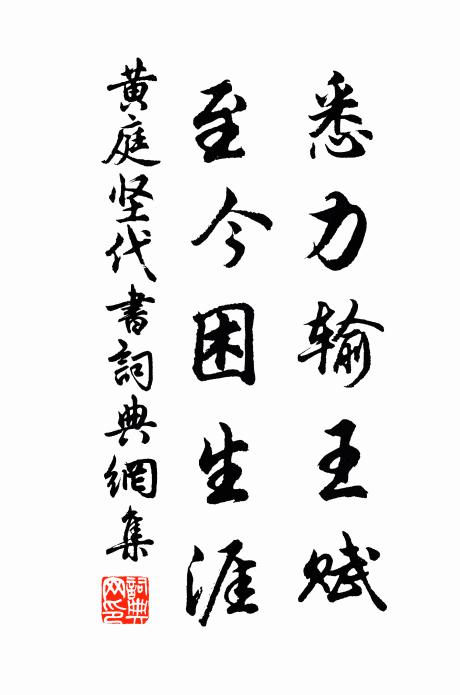 悉力输王赋
至今困生涯
黄庭坚代书詞典網集
詞典网印